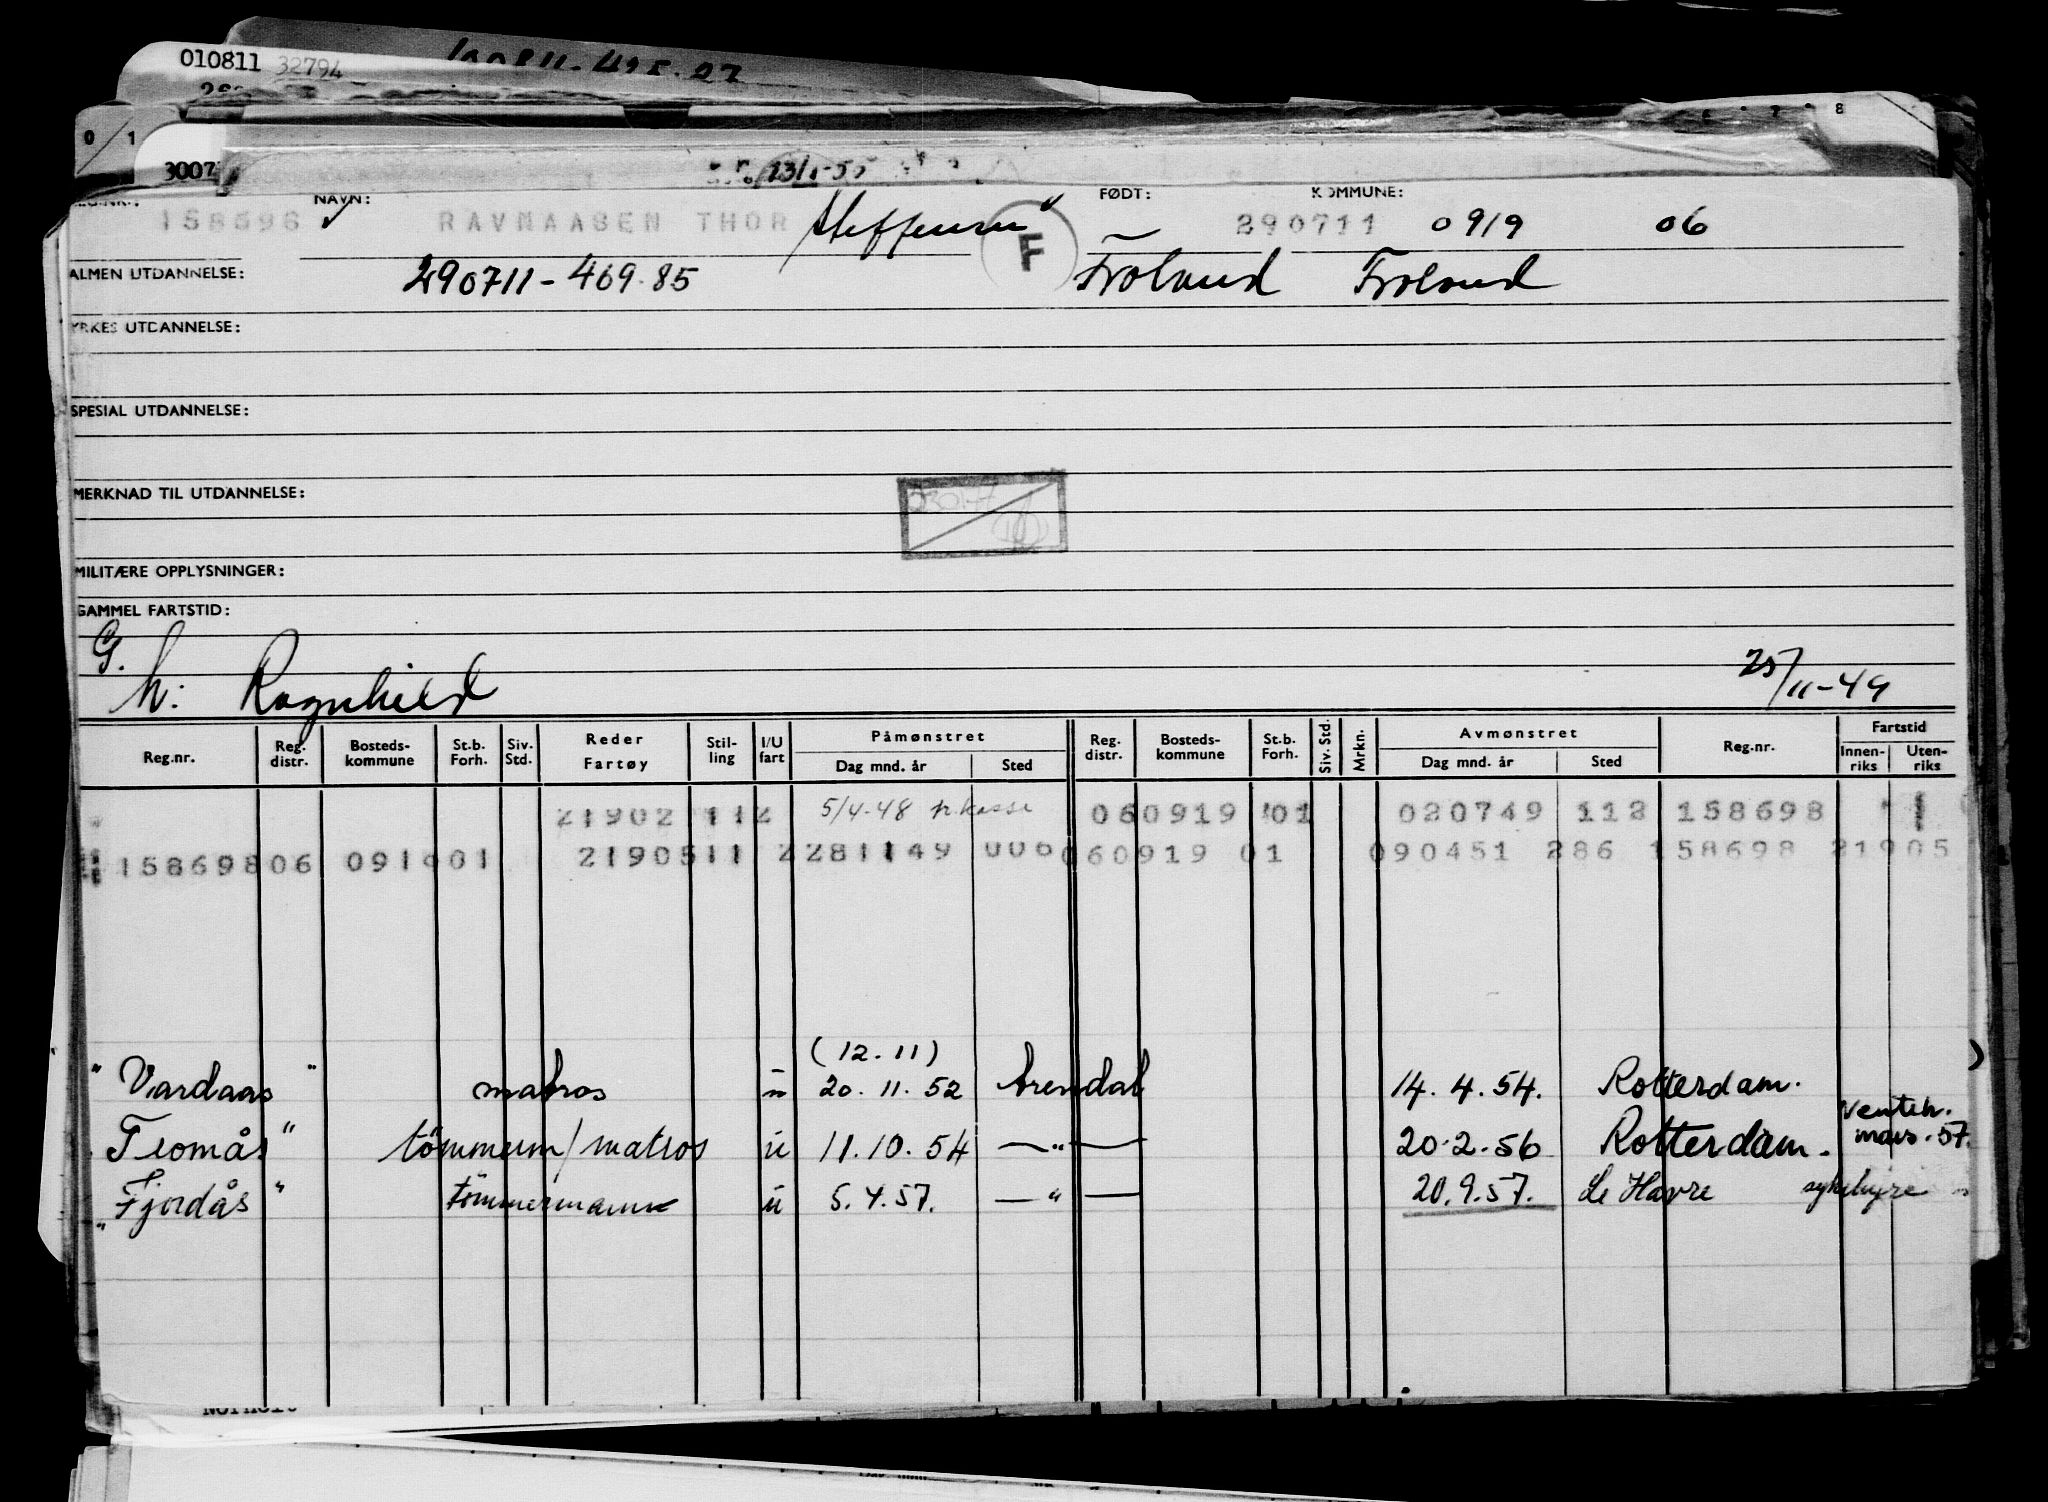 010811 32794
0 / 1
8
3007
23/1-55
NAVN: FØDT: KOMMUNE:
158698 RAVNAASEN THOR Steffensen F 290711 0919 06
ALMEN UTDANNELSE: 290711-469.85 Froland Froland
YRKES UTDANNELSE:
SPESIAL UTDANNELSE:
MERKNAD TIL UTDANNELSE:
MILITÆRE OPPLYSNINGER:
GAMMEL FARTSTID:
G.
h: Ragnhild 25/11-49
Reg.nr. Reg. distr. Bosteds-kommune St.b. Forh. Siv. Std. Reder Fartøy Stil-ling I/U fart Påmønstret Dag mnd. år Sted Reg. distr. Bosteds-kommune St.b. Forh. Siv. Std. Mrkn. Avmønstret Dag mnd. år Sted Reg.nr. Fartstid Innen-riks Uten-riks
21902 112 5/4-48 h.kasse 060919 01 020749 112 158698
158698 06 0919 01 2190511 2 281149 006 060919 01 090451 286 158698 21905
(12.11)
"Vardaas" matros u 20.11.52 Arendal 14.4.54. Rotterdam.
Tromås" tömmerm/matros u 11.10.54 —"— 20.2.56 Rotterdam. venteh. mars.57.
"Fjordås" tömmermann u 5.4.57. —"— 20.9.57. Le Havre sykehyre